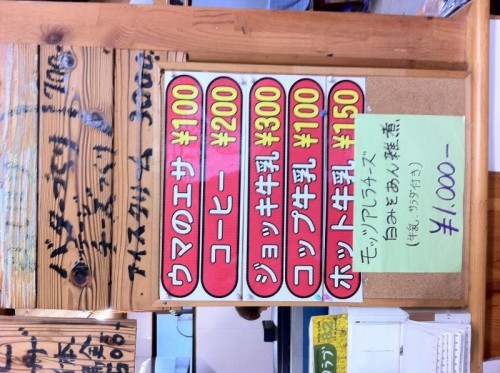 バターづくり
チーズづくり ¥700
アイスクリーム 300
ウマのエサ ¥100
コーヒー ¥200
ジョッキ牛乳 ¥300
コップ牛乳 ¥100
ホット牛乳 ¥150
モッツアレラチーズ
白みそあん雑煮
(牛乳、サラダ付き)
¥1,000-